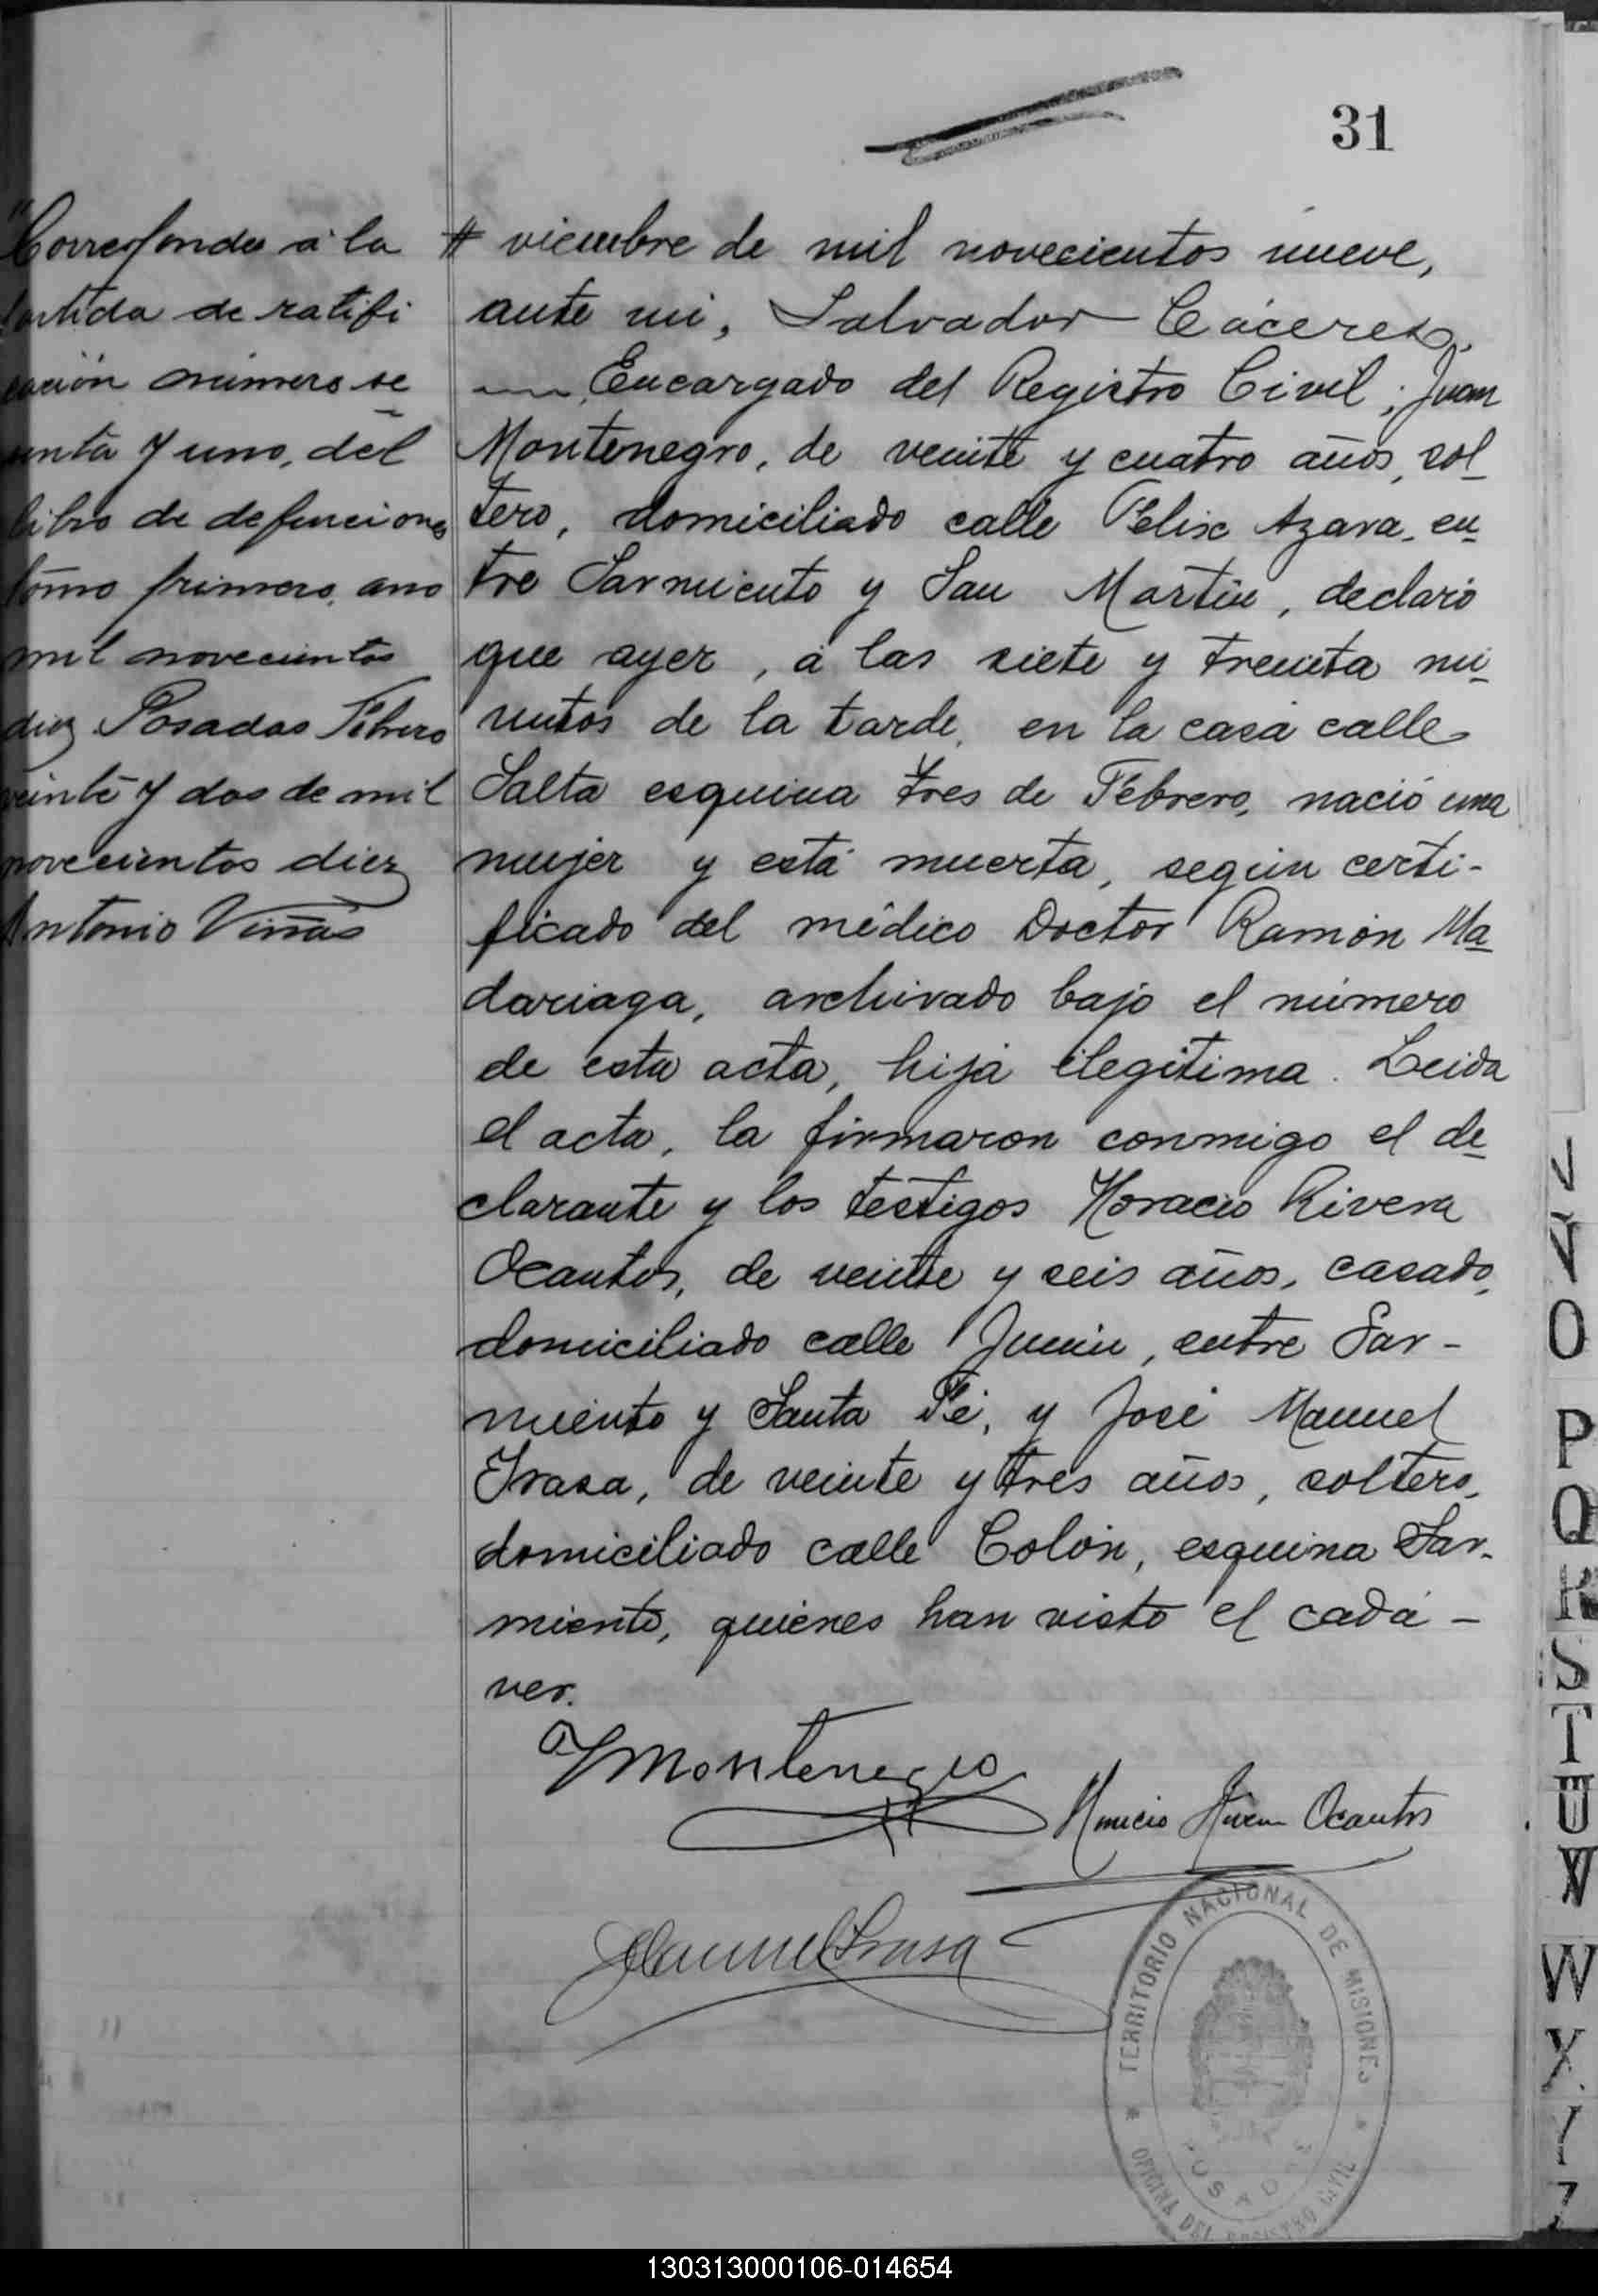 31
"Corresponde a la
partida de ratifi
cación número se
senta y uno, del
libro de defunciones
tomo primero, año
mil novecientos
diez Posadas Febrero
veinte y dos de mil
novecientos diez
Antonio Viñas
# viembre de mil novecientos nueve,
ante mi, Salvador Cáceres,
Encargado del Registro Civil; Juan
Montenegro, de veinte y cuatro años, sol-
tero, domiciliado calle Felix Azara, en-
tre Sarmiento y San Martín, declaró
que ayer, á las siete y treinta mi-
nutos de la tarde, en la casa calle
Salta esquina tres de Febrero, nació una
mujer y está muerta, según certi-
ficado del médico Doctor Ramón Ma-
dariaga, archivado bajo el número
de esta acta, hija ilegítima. Leida
el acta, la firmaron conmigo el de-
clarante y los testigos Horacio Rivera
Ocantos, de veinte y seis años, casado,
domiciliado calle Junin, entre Sar-
miento y Santa Fé, y José Manuel
Irasa, de veinte y tres años, soltero,
domiciliado calle Colón, esquina Sar-
miento, quienes han visto el cadá-
ver.
JMontenegro
Horacio Rivera Ocantos
JManuel Irasa
TERRITORIO NACIONAL DE MISIONES
POSADAS
OFICINA DEL REGISTRO CIVIL
O
P
Q
R
S
T
U
V
W
X
130313000106-014654